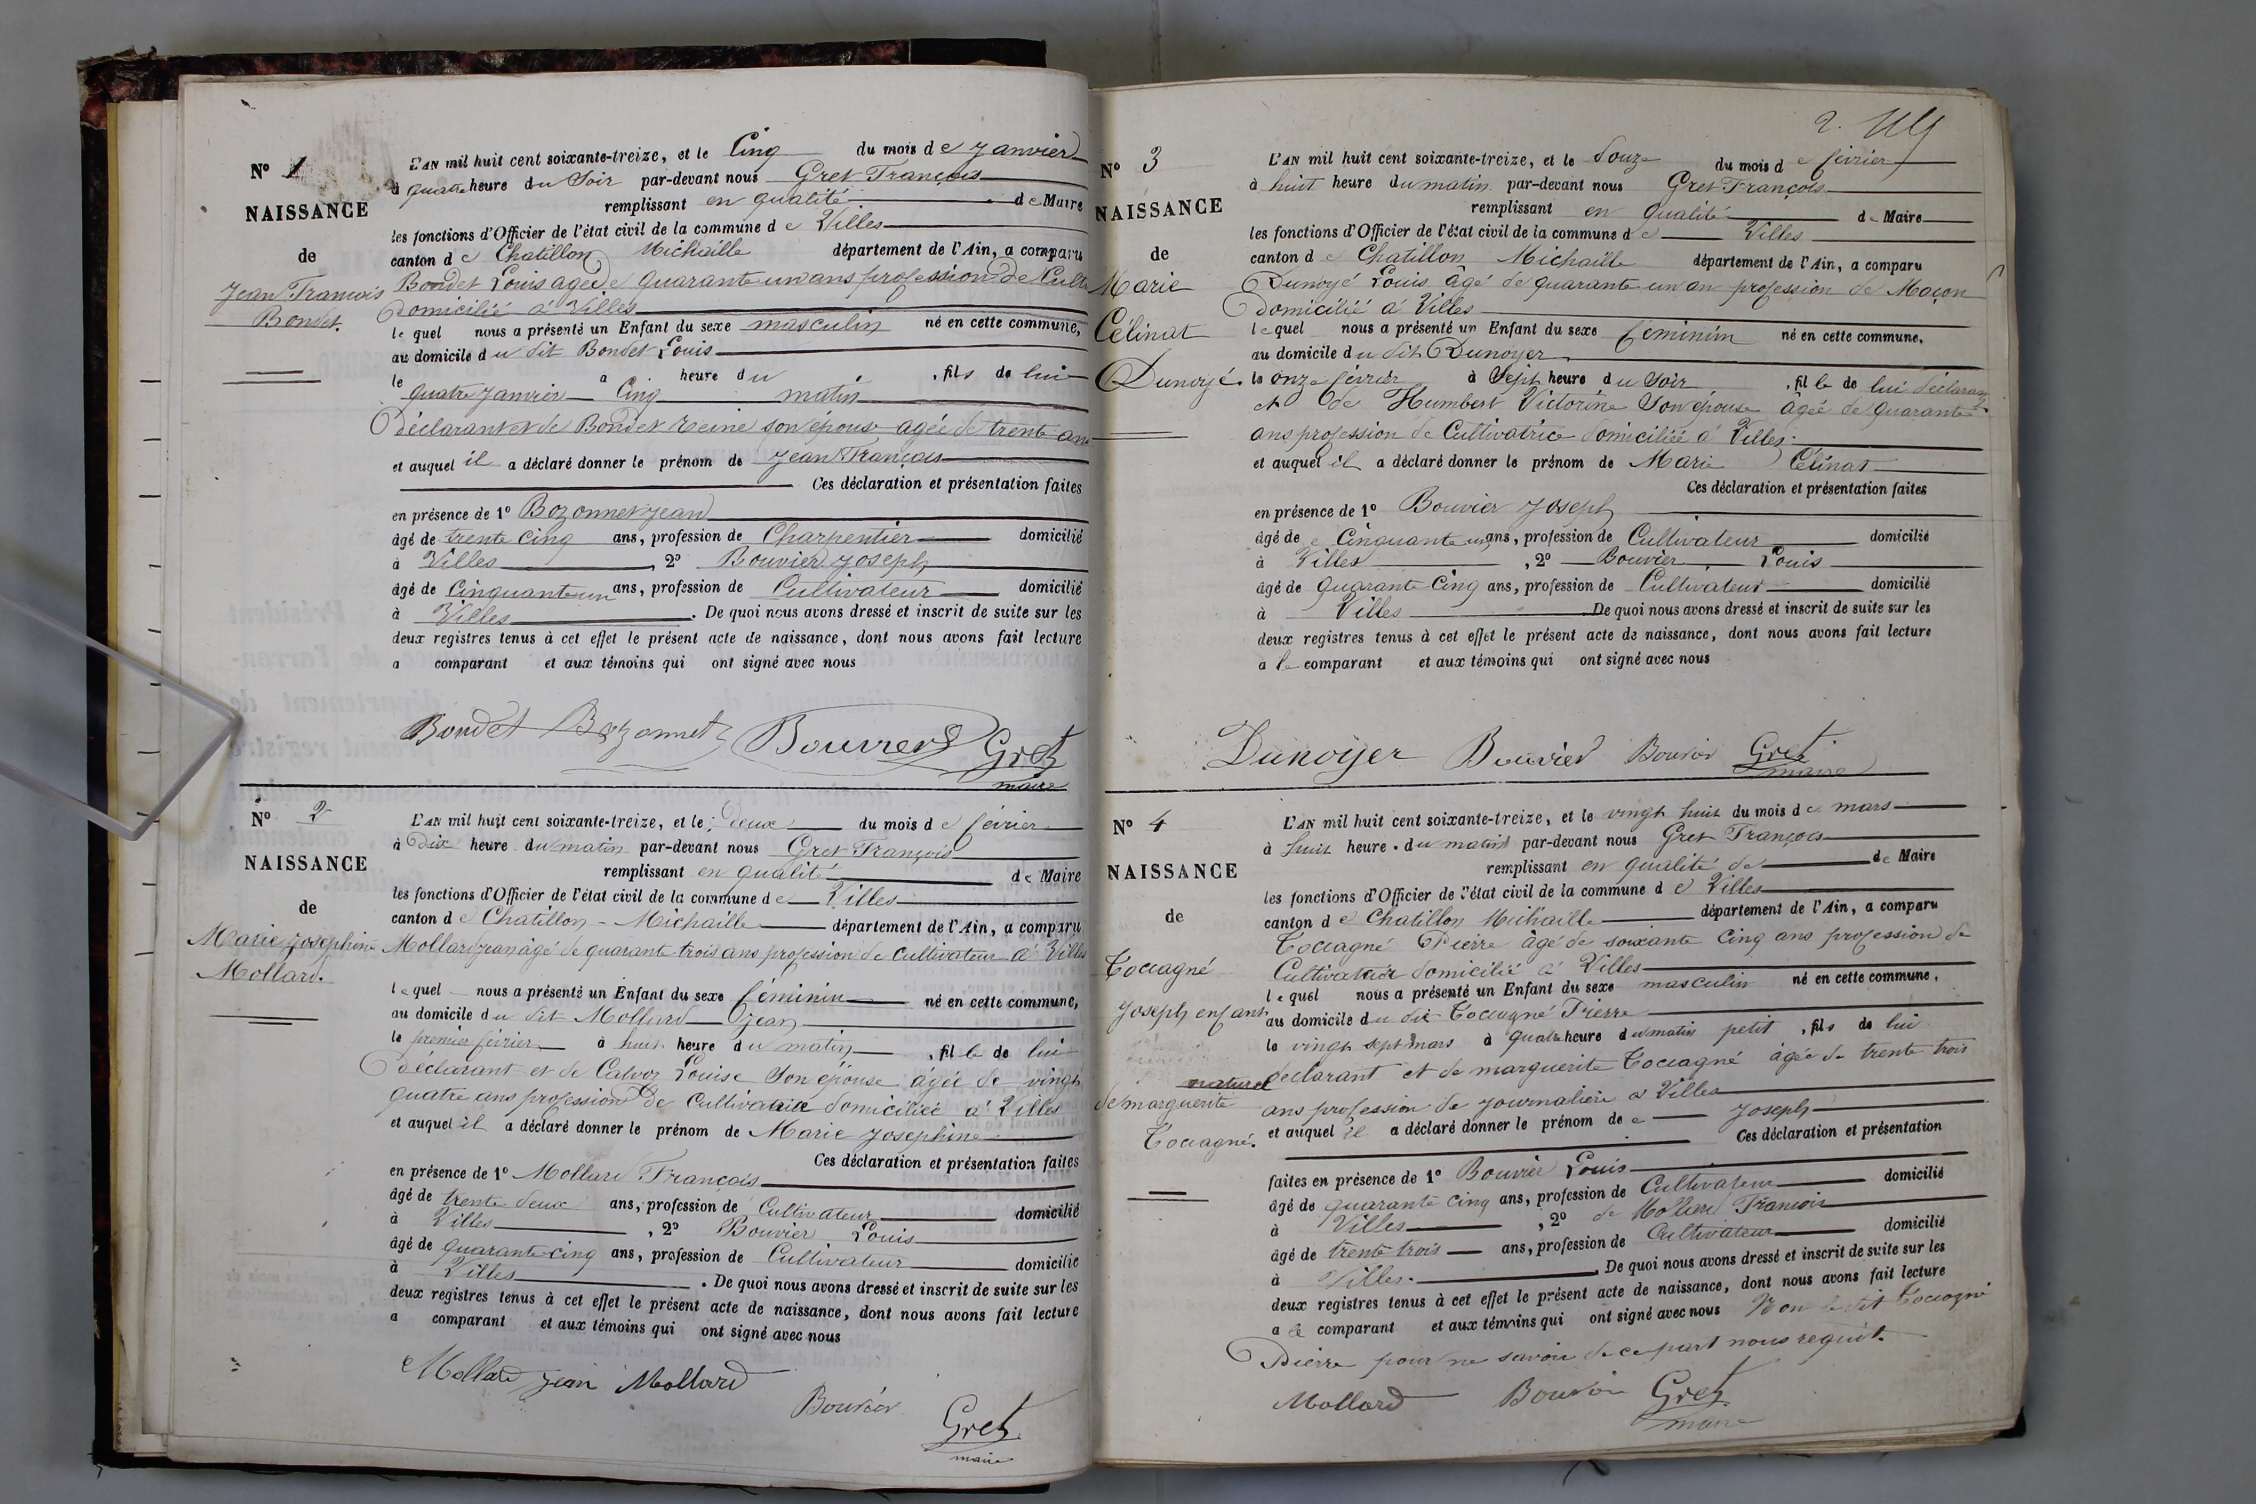 N° 1
NAISSANCE
de
Jean François
Bondet.
L'AN mil huit cent soixante-treize, et le Cinq du mois de Janvier
à quatre heure du Soir par-devant nous Gret François
remplissant en qualité de Maire
les fonctions d'Officier de l'état civil de la commune de Villes
canton de Chatillon Michaille département de l'Ain, a comparu
Bondet Louis agé de quarante un ans profession de Cult
Domicilié à Villes
le quel nous a présenté un Enfant du sexe masculin né en cette commune,
au domicile du dit Bondet Louis
le quatre janvier à Cinq heure du matin, fils de lui
Déclarant et de Bondet Reine son épouse agée de trente ans
et auquel il a déclaré donner le prénom de Jean François
Ces déclaration et présentation faites
en présence de 1° Bozonnet Jean
âgé de trente cinq ans, profession de Charpentier domicilié
à Villes, 2° Bouvier Joseph
âgé de Cinquante un ans, profession de Cultivateur domicilié
à Villes. De quoi nous avons dressé et inscrit de suite sur les
deux registres tenus à cet effet le présent acte de naissance, dont nous avons fait lecture
a comparant et aux témoins qui ont signé avec nous
Bondet Bozonnet Bouvier Gret
maire
N° 2
NAISSANCE
de
Marie Josephine
Mollard.
L'AN mil huit cent soixante-treize, et le deux du mois de février
à Dix heure du matin par-devant nous Gret François
remplissant en qualité de Maire
les fonctions d'Officier de l'état civil de la commune de Villes
canton de Chatillon - Michaille département de l'Ain, a comparu
Mollard jean âgé de quarante trois ans profession de cultivateur à Villes
le quel nous a présenté un Enfant du sexe féminin né en cette commune,
au domicile du dit Mollard jean
le premier février à huit heure du matin, fille de lui
Déclarant et de Calvoz Louise Son épouse âgée de vingt
quatre ans profession De Cultivatrice domiciliée à Villes
et auquel il a déclaré donner le prénom de Marie Josephine
Ces déclaration et présentation faites
en présence de 1° Mollard François
âgé de trente deux ans, profession de Cultivateur domicilié
à Villes, 2° Bouvier Louis
âgé de quarante-cinq ans, profession de Cultivateur domicilié
à Villes. De quoi nous avons dressé et inscrit de suite sur les
deux registres tenus à cet effet le présent acte de naissance, dont nous avons fait lecture
a comparant et aux témoins qui ont signé avec nous
Mollard jean Mollard
Bouvier
Gret
maire
2.
N° 3
NAISSANCE
de
Marie
Célinat
Dunoyé.
L'AN mil huit cent soixante-treize, et le Douze du mois de février
à huit heure du matin par-devant nous Gret François
remplissant en qualité de Maire
les fonctions d'Officier de l'état civil de la commune de Villes
canton de Chatillon Michaille département de l'Ain, a comparu
Dunoyé Louis âgé de quarante un an profession de Maçon
Domicilié à Villes
le quel nous a présenté un Enfant du sexe féminin né en cette commune,
au domicile du dit Dunoyer
le onze février à Sept heure du Soir, fille de lui déclarant
et de Humbert Victorine Son épouse âgée de quarante
ans profession de Cultivatrice domiciliée à Villes.
et auquel il a déclaré donner le prénom de Marie Célinat
Ces déclaration et présentation faites
en présence de 1° Bouvier Joseph
âgé de Cinquante un ans, profession de Cultivateur domicilié
à Villes, 2° Bouvier Louis
âgé de quarante Cinq ans, profession de Cultivateur domicilié
à Villes De quoi nous avons dressé et inscrit de suite sur les
deux registres tenus à cet effet le présent acte de naissance, dont nous avons fait lecture
a le comparant et aux témoins qui ont signé avec nous
Dunoyer Bouvier Bouvier Gret
maire
N° 4
NAISSANCE
de
Coccagné
Joseph enfant
naturel
de marguerite
Coccagné.
L'AN mil huit cent soixante-treize, et le vingt huit du mois de mars
à huit heure du matin par-devant nous Gret François
remplissant en qualité de de Maire
les fonctions d'Officier de l'état civil de la commune de Villes
canton de Chatillon Michaille département de l'Ain, a comparu
Coccagné Pierre âgé de soixante Cinq ans profession de
Cultivateur domicilié à Villes
le quel nous a présenté un Enfant du sexe masculin né en cette commune,
au domicile du dit Coccagné Pierre
le vingt sept mars à quatre heure du matin petit, fils de lui
déclarant et de marguerite Coccagné âgée de trente trois
ans profession de journalière à Villes
et auquel il a déclaré donner le prénom de Joseph
Ces déclaration et présentation
faites en présence de 1° Bouvier Louis
âgé de quarante cinq ans, profession de Cultivateur domicilié
à Villes, 2° de Mollard François
âgé de trente trois ans, profession de Cultivateur domicilié
à Villes. De quoi nous avons dressé et inscrit de suite sur les
deux registres tenus à cet effet le présent acte de naissance, dont nous avons fait lecture
a le comparant et aux témoins qui ont signé avec nous Non le dit Coccagné
Pierre pour ne savoir de ce part nous requit.
Mollard Bouvier Gret
maire